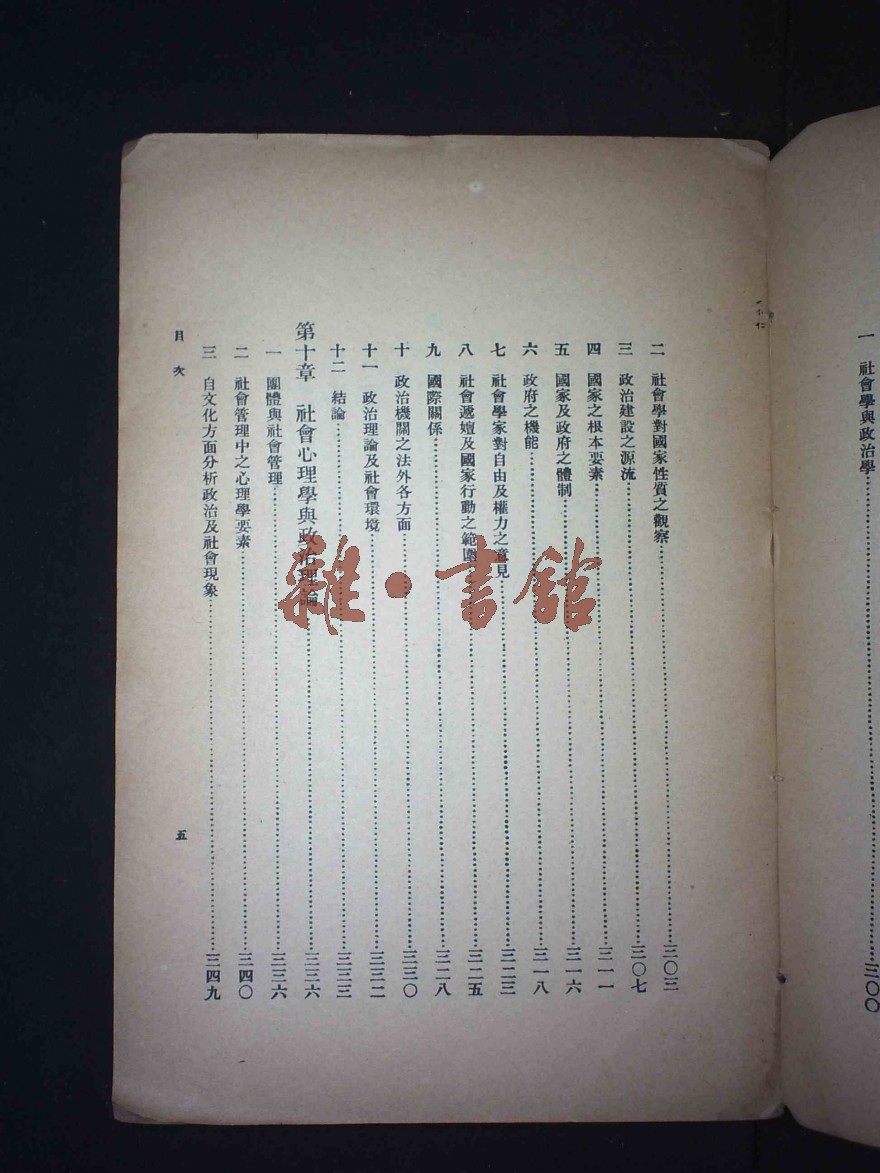 一　社會學與政治學……三〇〇
二　社會學對國家性質之觀察……三〇三
三　政治建設之源流……三〇七
四　國家之根本要素……三一一
五　國家及政府之體制……三一六
六　政府之機能……三一八
七　社會學家對自由及權力之意見……三二三
八　社會遞嬗及國家行動之範圍……三二五
九　國際關係……三二八
十　政治機關之法外各方面……三三〇
十一　政治理論及社會環境……三三二
十二　結論……三三三
第十章　社會心理學與政治理論……三三六
一　團體與社會管理……三三六
二　社會管理中之心理學要素……三四〇
三　自文化方面分析政治及社會現象……三四九
目次　五
雜·書館